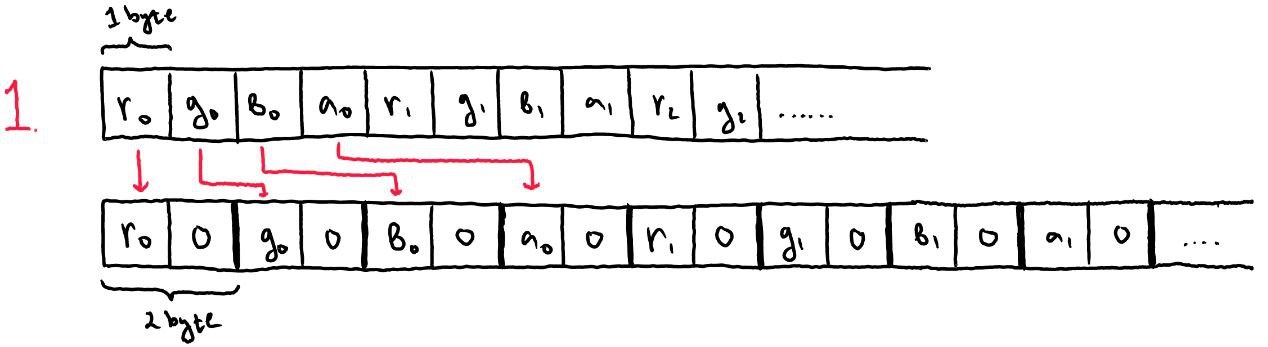 1 byte
1.
r₀ g₀ B₀ a₀ r₁ g₁ B₁ a₁ r₂ g₂ ......
r₀ 0 g₀ 0 B₀ 0 a₀ 0 r₁ 0 g₁ 0 B₁ 0 a₁ 0 ....
2 byte